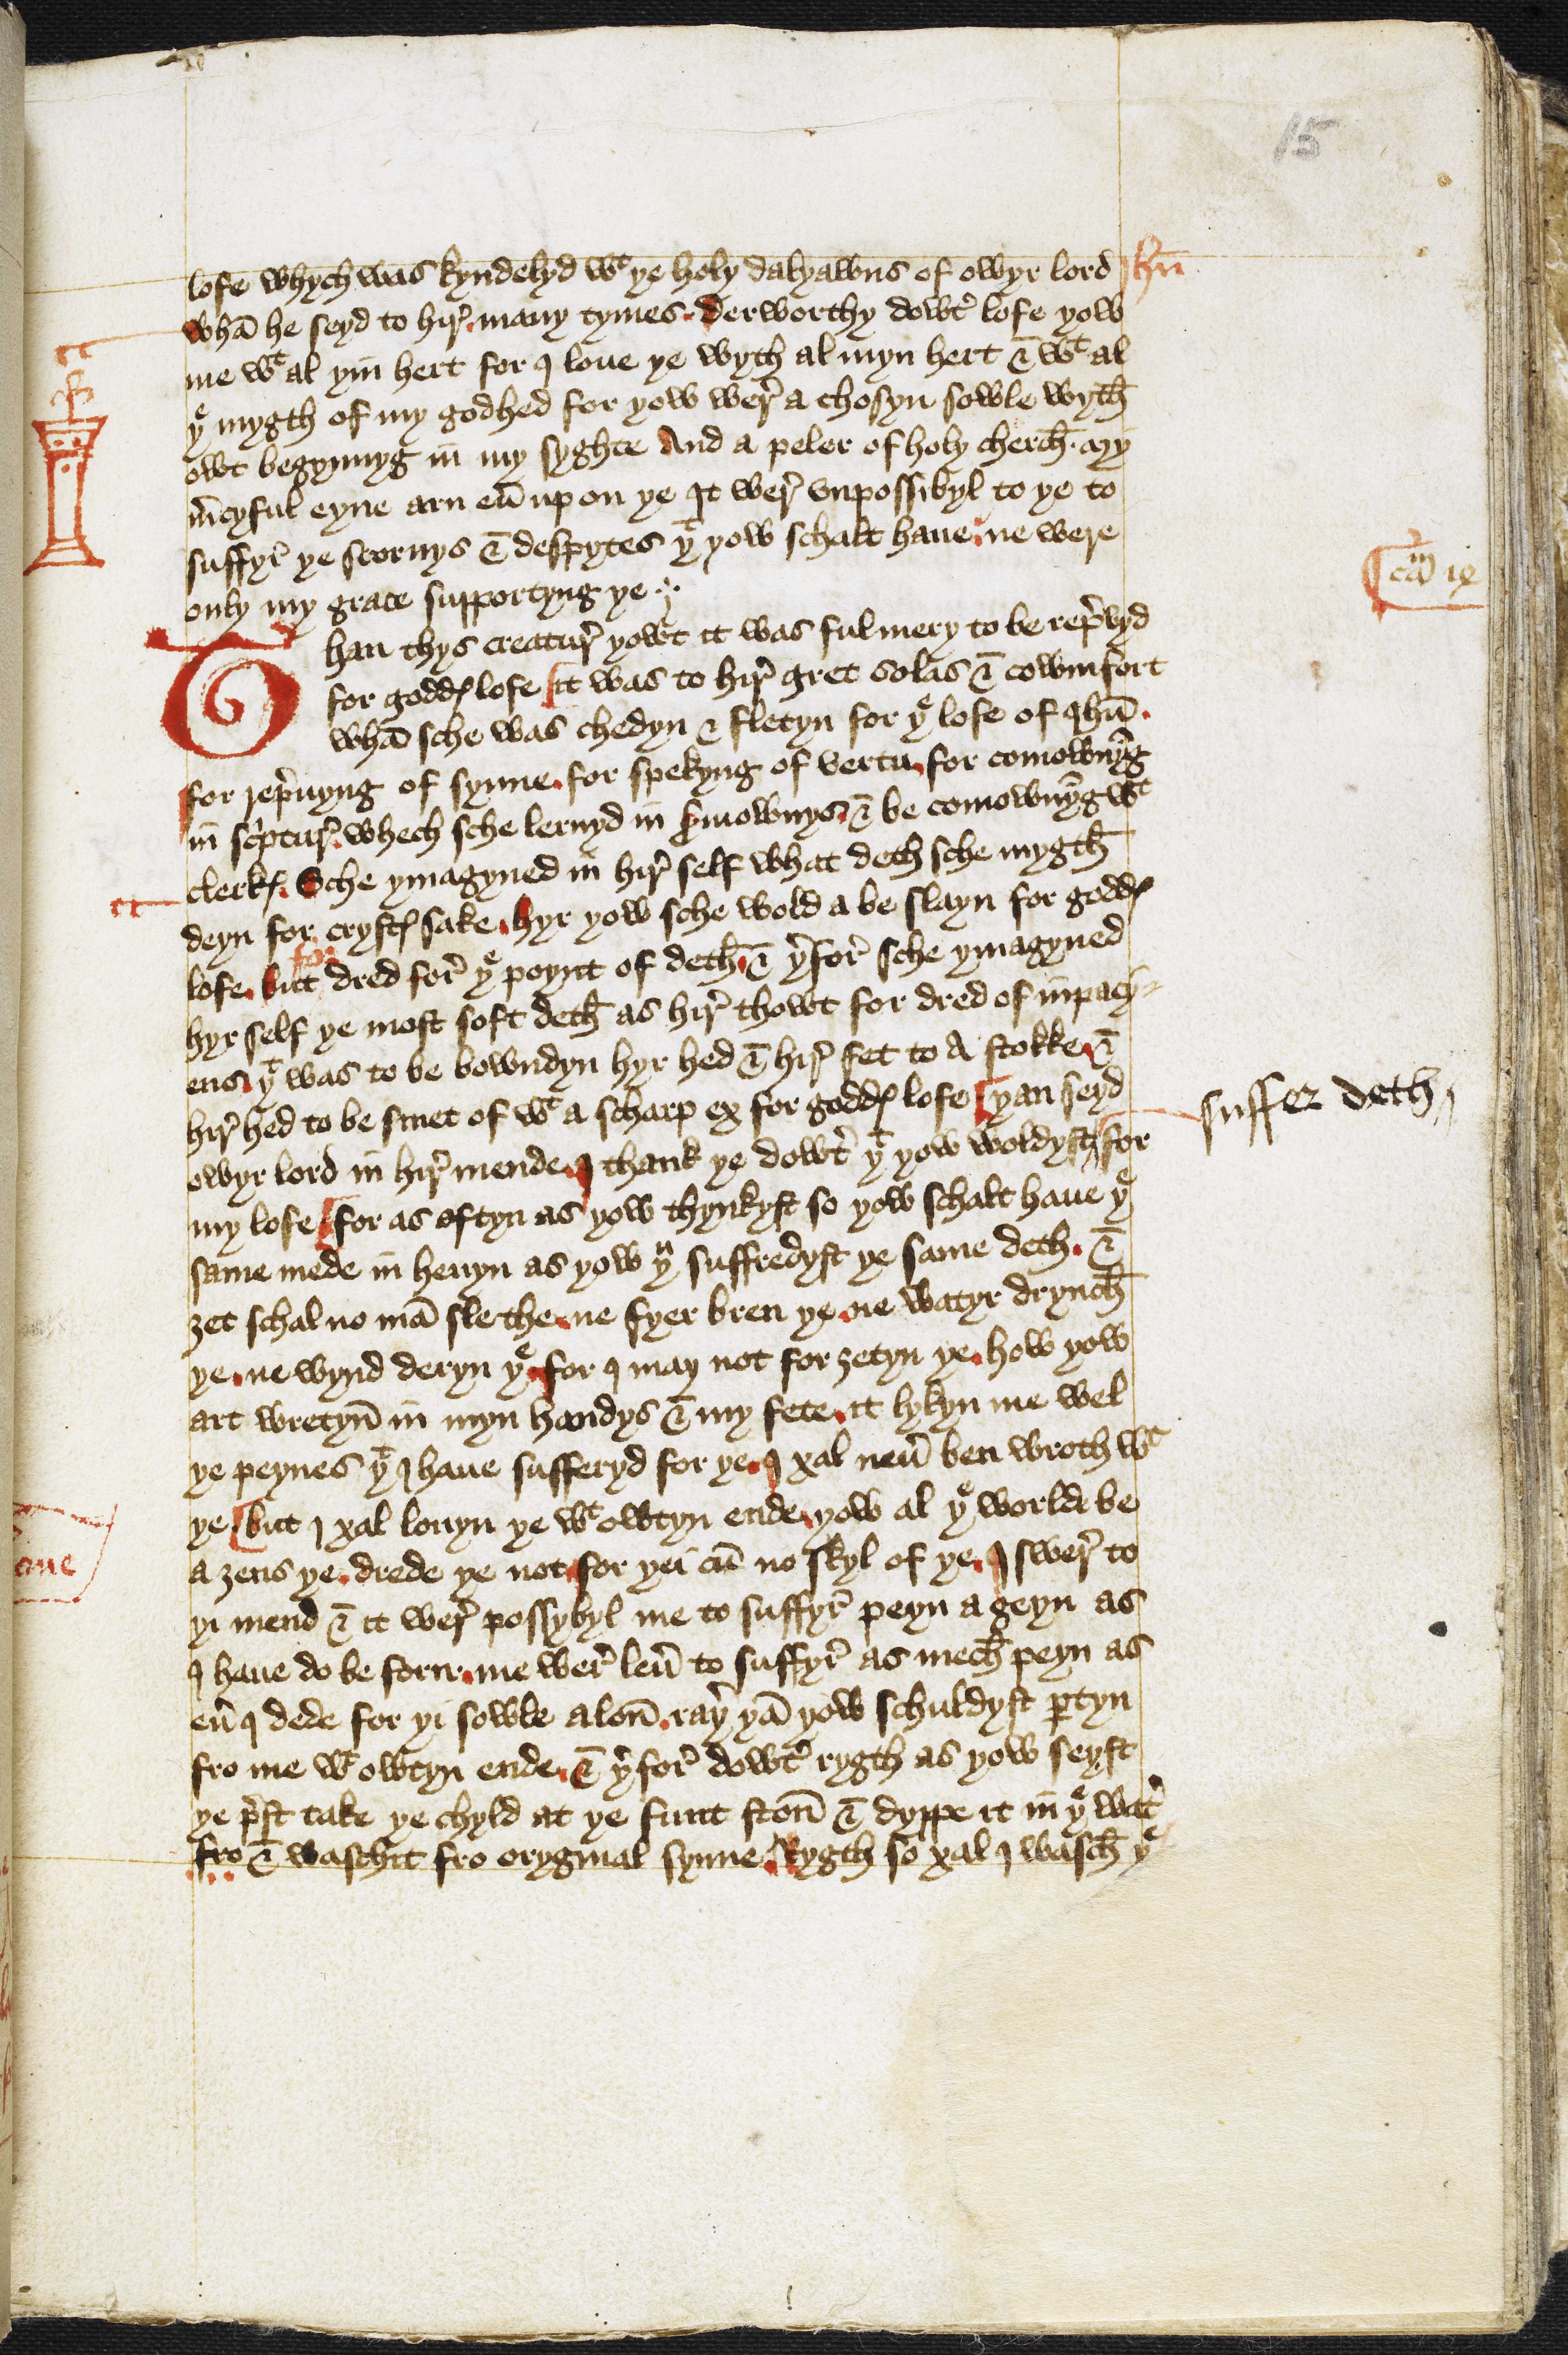 15
lofe whych was kyndelyd wᵗ ye holy dalyawns of owyr lord Ihū
whā he seyd to hirꝰ many tymes. Derworthy dowtꝰ lofe yow
me wᵗ al yin hert for I loue ye wyth al myn hert & wᵗ al
yᵉ mygth of my godhed for yow werꝰ a chosyn sowle wyth
owt begynnyg in my syghte And a peler of holy cherch. My
mꝰcyful eyne arn euꝰ up on ye It werꝰ vnpossibyl to ye to
suffyrꝰ ye scornys & despytes yᵗ yow schalt haue. ne were
only my grace supportyng ye
caᵐ 14
Than thys creaturꝰ yowt it was ful mery to be reprꝰvyd
for goddꝭ lofe it was to hirꝰ gret solas & cowmfort
whā sche was chedyn & fletyn for yᵉ lofe of Ihū.
for reprꝰuyng of synne. for spekyng of vertu. for comownyꝰg
in scꝰpturꝰ. whech sche lernyd in sꝰmownys. & be comownyꝰg wᵗ
clerkꝭ. Sche ymagyned in hirꝰ self what deth sche mygth
deyn for crystꝭ sake. hyr yow sche wold a be slayn for goddꝭ
for
lofe. but dred forꝰ yᵉ poynt of deth. & yꝰforꝰ sche ymagyned
hyr self ye most soft deth as hirꝰ thowt for dred of inpacy=
ens. yᵗ was to be bowndyn hyr hed & hirꝰ fet to A stokke. &
hirꝰ hed to be smet of wᵗ a scharp ex for goddꝭ lofe yan seyd
suffer deth
owyr lord in hirꝰ mende. I thank ye dowtꝰ yᵗ yow woldyst for
my lofe for as oftyn as yow thynkyst so yow schalt haue yᵉ
same mede in heuyn as yow yᵘ suffredyst ye same deth. &
ȝet schal no mā sle the. ne fyer bren ye. ne watyr drynch
ye. ne wynd deryn yᵉ. for I may not for ȝetyn ye. how yow
art wretyn in myn handys & my fete. it lykyn me wel
ye peynes yᵗ I haue sufferyd for ye. I xal neuꝰ ben wroth wᵗ
ye but I xal louyn ye wᵗ owtyn ende. yow al yᵉ world be
a ȝens ye. drede ye not. for yei cū no skyl of ye. I swerꝰ to
yi mend & it werꝰ possybyl me to suffyrꝰ peyn a geyn as
I haue do be forn. me werꝰ leuꝰ to suffyrꝰ as mech peyn as
euꝰ I dede for yi sowle alon. rayꝰ yā yow schuldyst ꝑtyn
fro me wᵗ owtyn ende. & yꝰforꝰ dowtꝰ rygth as yow seyst
ye prꝰst take ye chyld at ye funt ston & dyppe it in yᵉ watꝰ
fro & wasch it fro orygynal synne Rygth so xal I wasch yᵉ